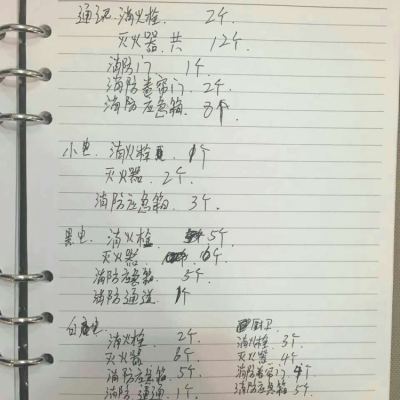 通讯. 消火栓 2个
灭火器. 共 12个
消防门 1个
消防卷帘门. 2个
消防应急箱. 8个
小电. 消火栓 1个
灭火器. 2个.
消防应急箱. 3个.
黑电. 消火栓 5个.
灭火器 6个.
消防应急箱. 5个.
消防通道 1个
白 电
消火栓 2个
灭火器 6个
消防应急箱 5个
消防通道 1个
厨卫
消火栓 3个
灭火器 4个
消防卷帘门 4个
消防应急箱 5个